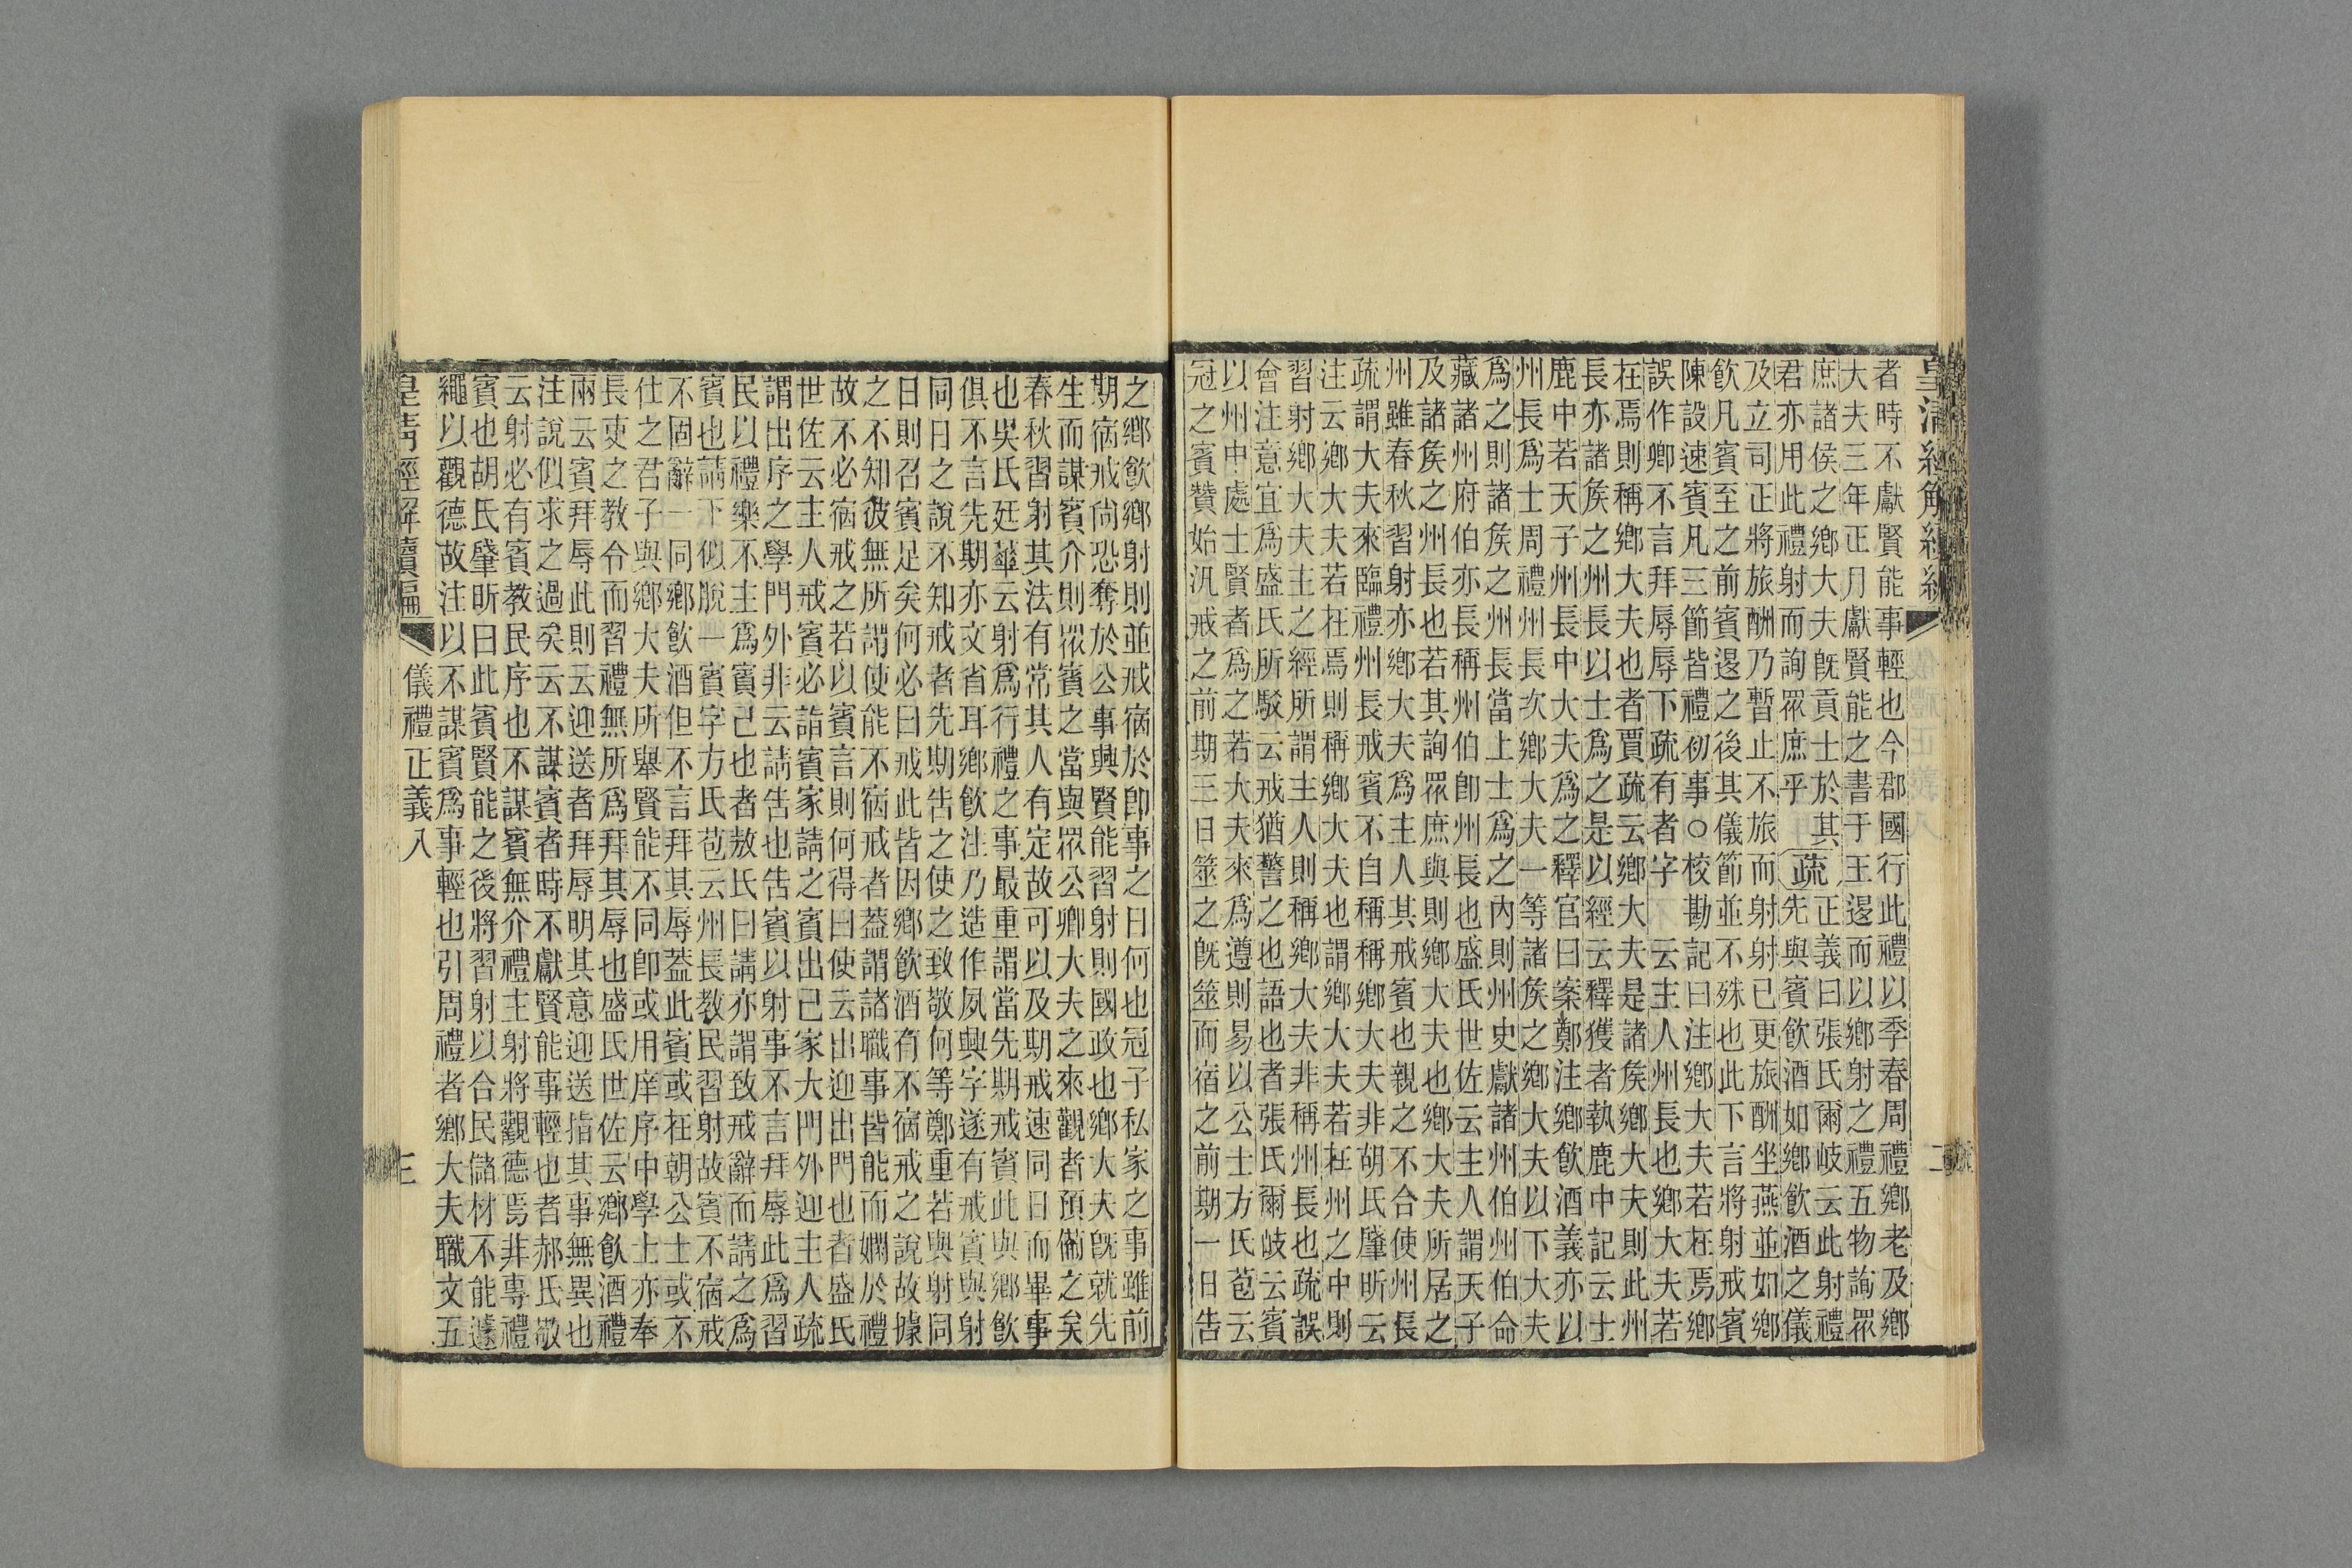 者時不獻賢能事輕也今郡國行此禮以季春周禮鄉老及鄉
大夫三年正月獻賢能之書于王退而以鄉射之禮五物詢眾
庶諸侯之鄉大夫旣貢士於其
疏
正義曰張氏爾岐云此射禮
君亦用此禮射而詢眾庶乎
先與賓飲酒如鄉飲酒之儀
及立司正將旅酬乃暫止不旅而射射已更旅酬坐燕並如鄉
飲凡賓至之前賓退之後其儀節並不殊也此下言將射戒賓
陳設速賓凡三節皆禮初事○校勘記曰注鄉大夫若在焉鄉
誤作卿不言拜辱辱下疏有者字 云主人州長也鄉大夫若
在焉則稱鄉大夫也者賈疏云鄉大夫是諸矦鄉大夫則此州
長亦諸矦之州長以士爲之是以經云釋獲者執鹿中記云士
鹿中若天子州長中大夫爲之釋官曰案鄭注鄉飲酒義亦以
州長爲士周禮州長次鄉大夫一等諸矦之鄉大夫以下大夫
爲之則諸矦之州長當上士爲之內則州史獻諸州伯州伯命
藏諸州府伯亦長稱州伯卽州長也盛氏世佐云主人謂天子
及諸矦之州長也若其詢眾庶與則鄉大夫也鄉大夫所居之
州雖春秋習射亦鄉大夫爲主人其戒賓也親之不合使州長
疏謂大夫來臨禮州長戒賓不自稱稱鄉大夫非胡氏肇昕云
注云鄉大夫若在焉則稱鄉大夫也謂鄉大夫若在州之中則
習射鄉大夫主之經所謂主人則稱鄉大夫非稱州長也疏誤
會注意宜爲盛氏所駁云戒猶警之也語也者張氏爾岐云賓
以州中處士賢者爲之若大夫來爲遵則易以公士方氏苞云
冠之賓贊始汎戒之前期三日筮之旣筮而宿之前期一日告
之鄉飲鄉射則並戒宿於卽事之日何也冠子私家之事雖前
期宿戒尙恐奪於公事興賢能習射則國政也鄉大夫旣就先
生而謀賓介則眾賓之當與眾公卿大夫之來觀者預備之矣
春秋習射其法有常其人有定故可以及期戒速同日而畢事
也吳氏廷華云射爲行禮之事最重謂當先期戒賓此與鄉飲
俱不言先期亦文省耳鄉飲注乃造作夙興字遂有戒賓與射
同日之說不知戒者先期告之使之致敬何等鄭重若與射同
日則召賓足矣何必曰戒此皆因鄉飲酒有不宿戒之說故據
之不知彼無所謂使能不宿戒者葢謂諸職事皆能而嫺於禮
故不必宿戒之若以賓言則何得曰使云出迎出門也者盛氏
世佐云主人戒賓必詣賓家請之賓出已家大門外迎主人疏
謂出序之學門外非云請告也告賓以射事不言拜辱此爲習
民以禮樂不主爲賓己也者敖氏曰請亦謂致戒辭而請之爲
賓也請下似脫一賓字方氏苞云州長教民習射故賓不宿戒
不固辭一同鄉飲酒但不言拜其辱葢此賓或在朝公士或不
仕之君子與鄉大夫所舉賢能不同卽或用庠序中學士亦奉
長吏之教令而習禮無所爲拜其辱也盛氏世佐云鄉飲酒禮
兩云賓拜辱此則云迎送者拜辱明其意迎送指其事無異也
注說似求之過矣云不謀賓者時不獻賢能事輕也者郝氏敬
云射必有賓教民序也不謀賓無介禮主射將觀德焉非專禮
賓也胡氏肇昕曰此賓賢能之後將習射以合民儲材不能遽
繩以觀德故注以不謀賓爲事輕也引周禮者鄉大夫職文五
皇淸經解續編 儀禮正義八 三